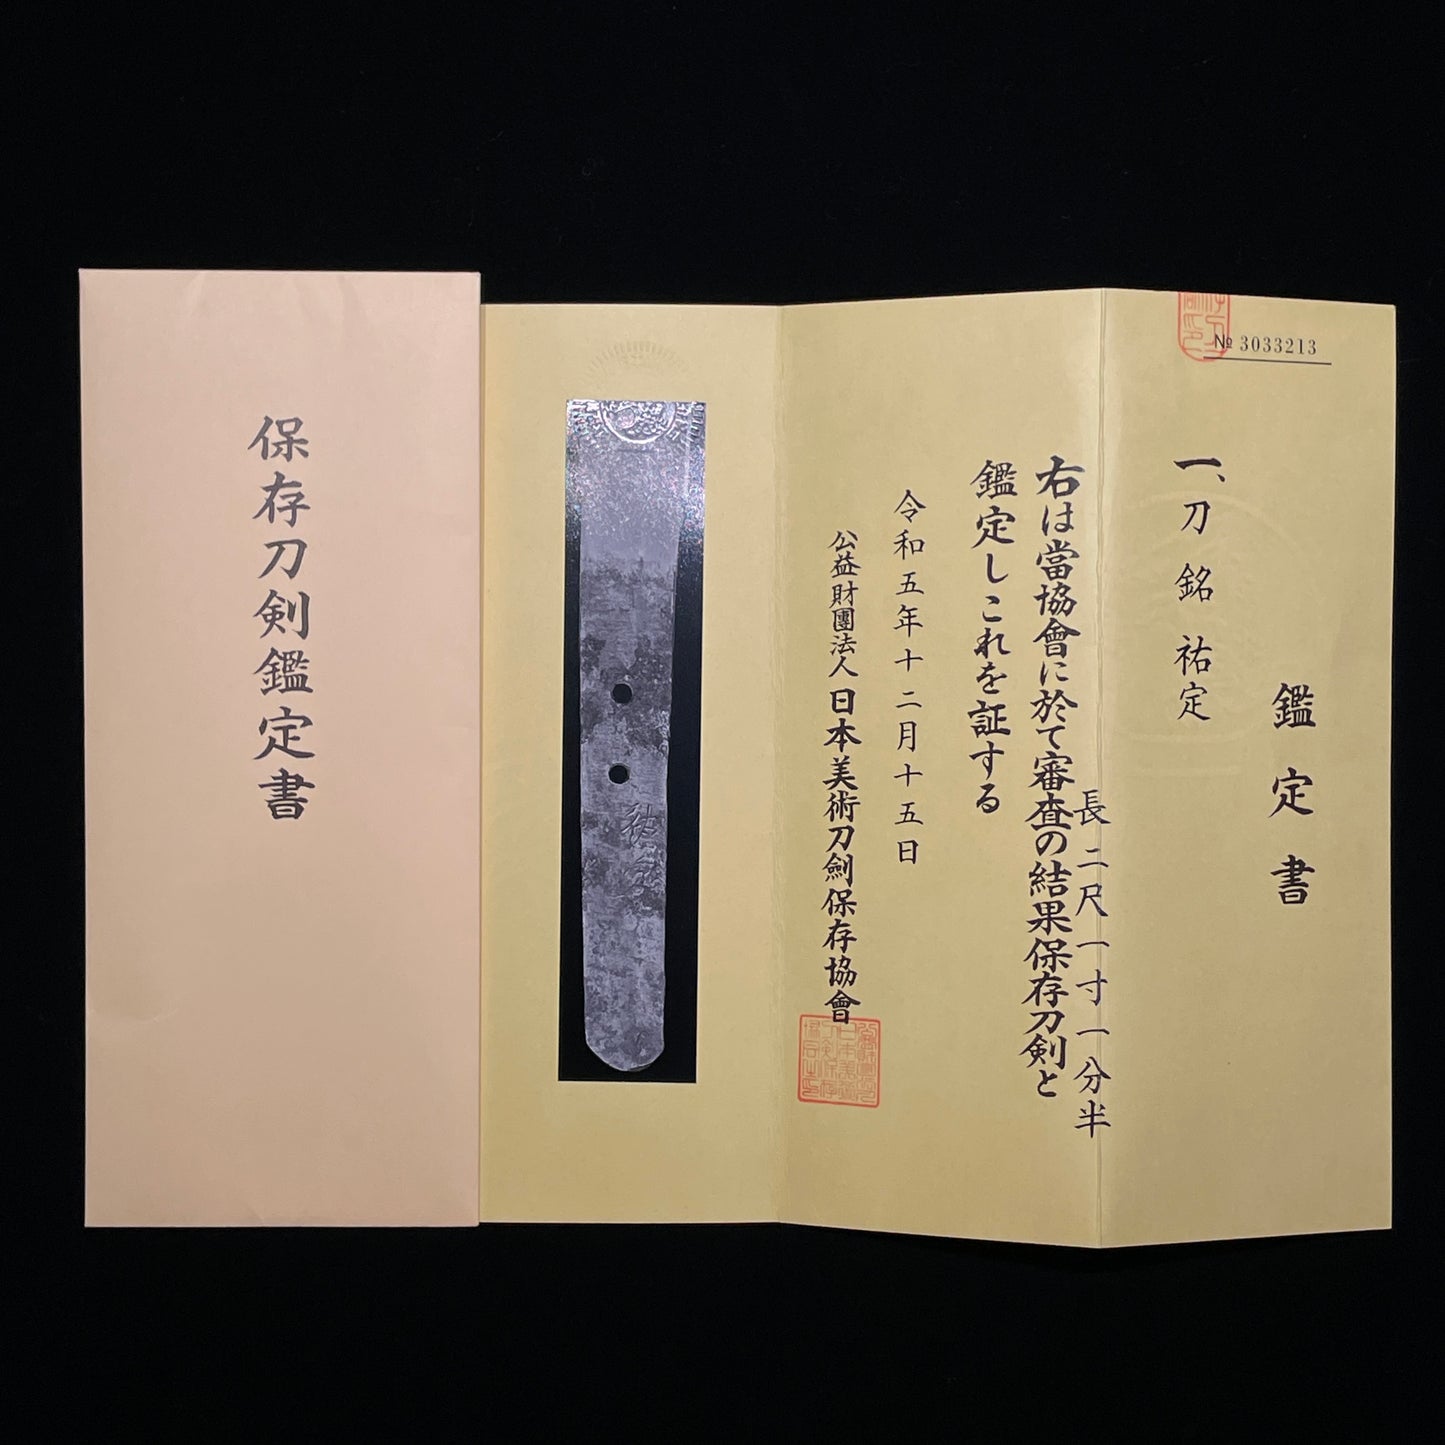 保存刀剣鑑定書
№ 3033213
鑑定書
一、刀 銘 祐定
長二尺一寸一分半
右は當協會に於て審査の結果保存刀剣と
鑑定しこれを証する
令和五年十二月十五日
公益財團法人 日本美術刀劍保存協會
祐定